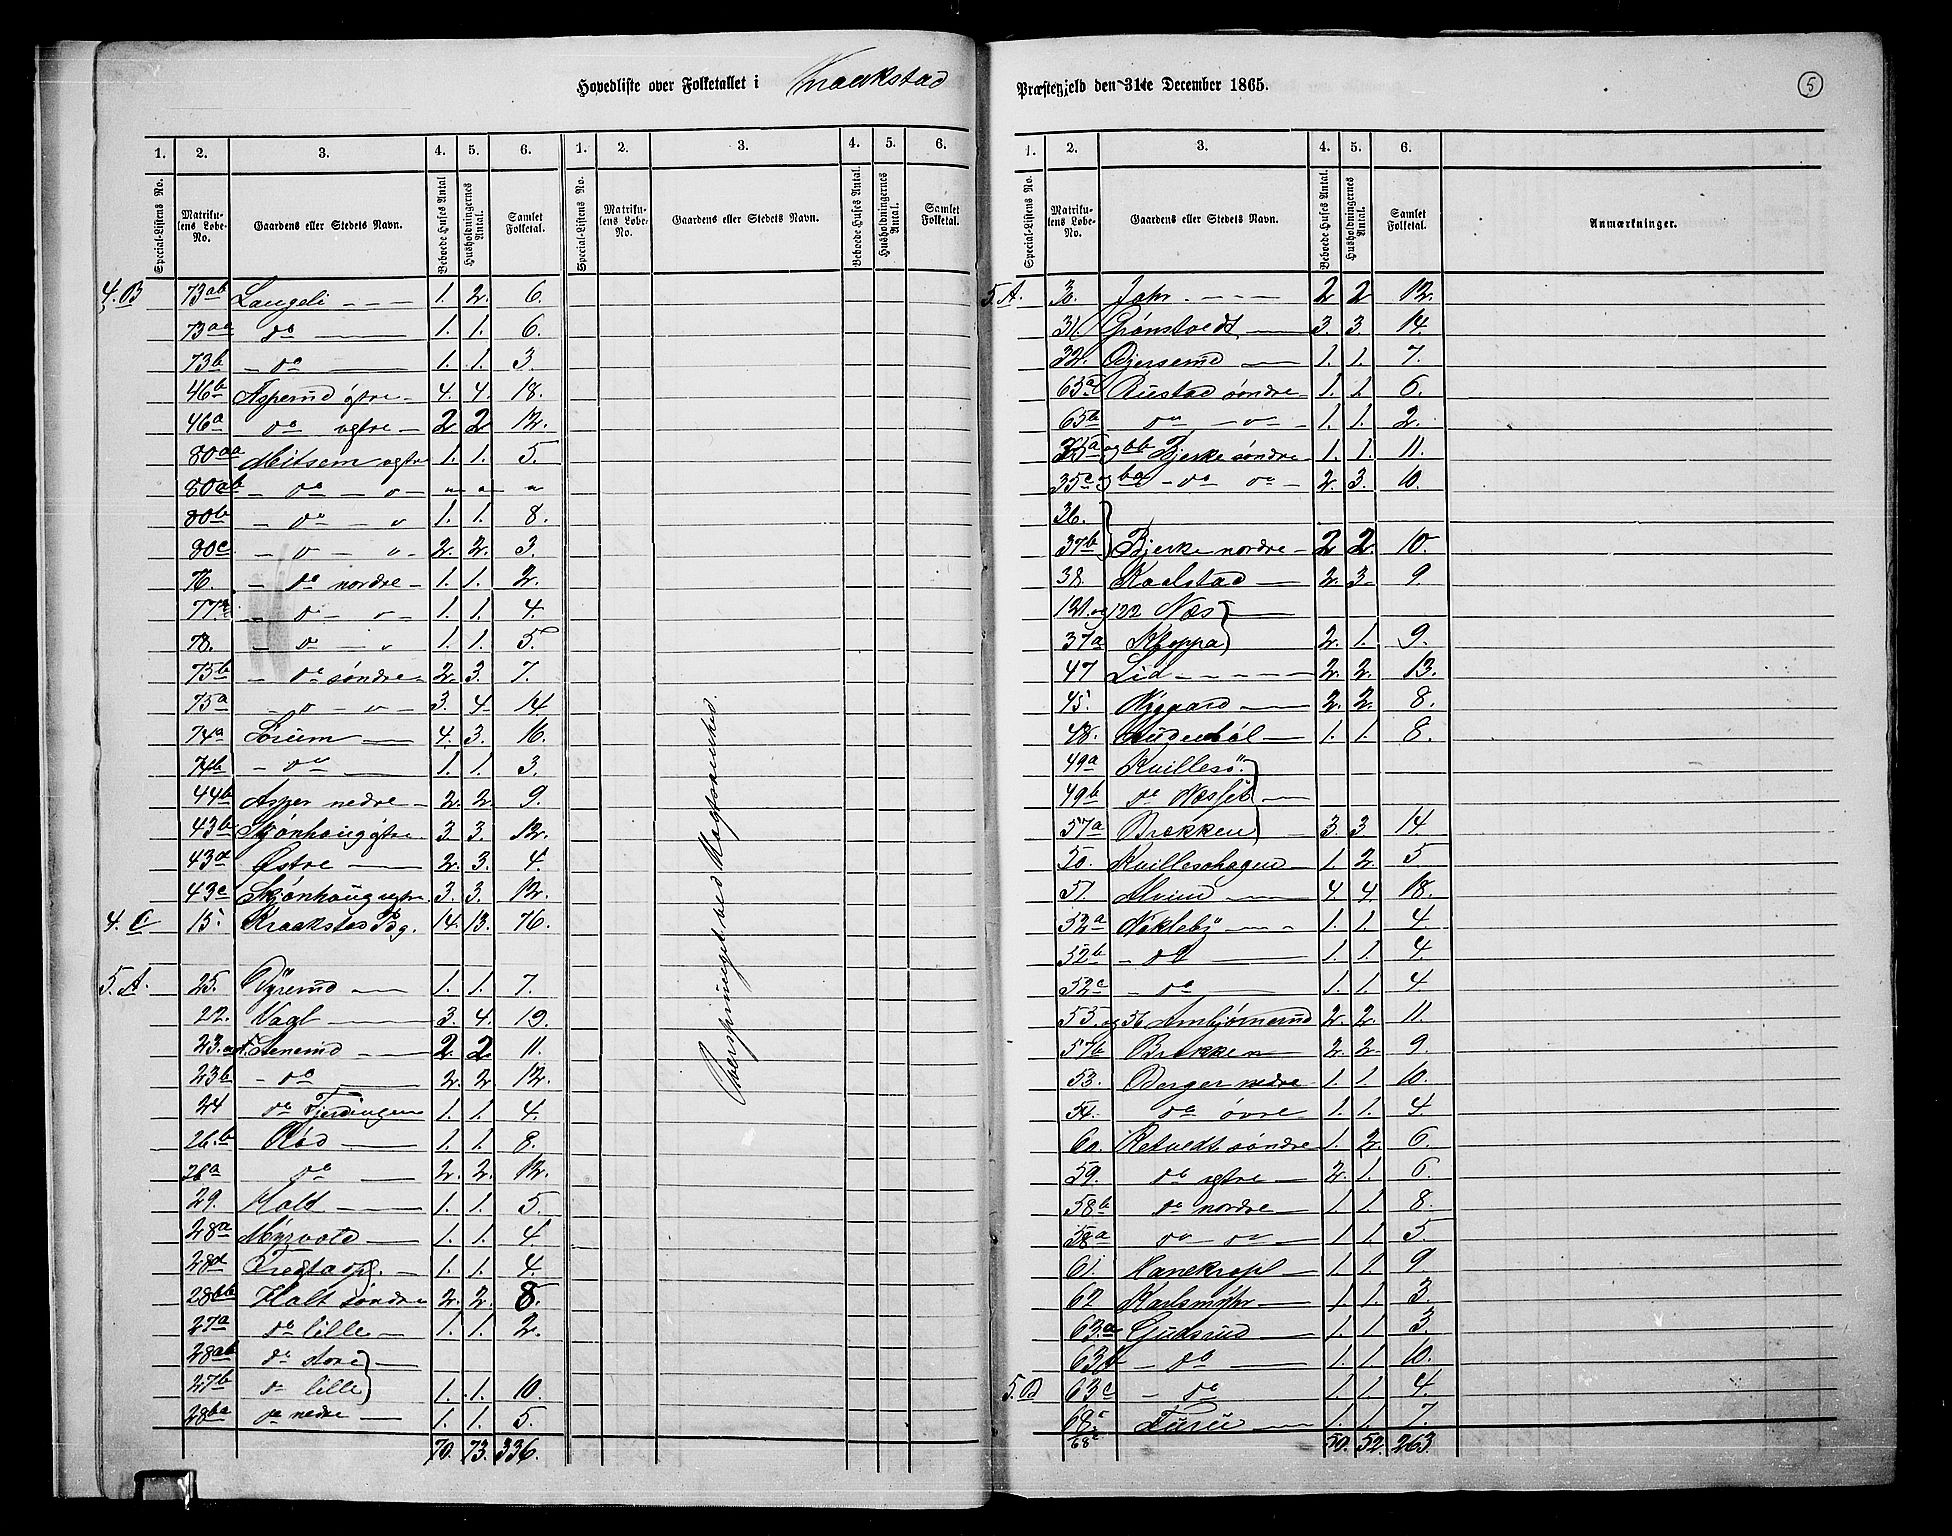 Hovedliste over Folketallet i Kraakstad Præstegjeld den 31te December 1865.
5
1. 2. 3. 4. 5. 6. 1. 2. 3. 4. 5. 6.
Special-Listens No. Matrikulens Løbe-No. Gaardens eller Stedets Navn. Beboede Huses Antal Husholdningernes Antal. Samlet Folketal. Special-Listens No. Matrikulens Løbe-No. Gaardens eller Stedets Navn. Beboede Huses Antal. Husholdningernes Antal. Samlet Folketal.
4.B 73ab Langeli - - - 1. 2. 6.
73aa do 1. 1. 6.
73b - do 1. 1. 3.
46b Asperud østre 4. 4. 18.
46a do vestre 2 2 12.
80aa Mitsem vestre 1. 1. 5.
80ab - do - o - " " "
80b - do - o 1. 1. 8.
80c - o - o - 2. 2. 3.
76. - do nordre 1. 1. 2.
77. - o - o - 1. 1. 4.
78. - o - o 1. 1. 5.
75b - do søndre 2. 3. 7.
75a - o - o - 3. 4. 14
74a Sørum 4. 3. 16.
74b - do 1. 1. 3.
44b Asper nedre 2. 2. 9.
43b Skjønhaug østre 3 3. 12.
43d Østre 2. 3. 4.
43c Skjønhaug vestre 3. 3. 12.
4.C 15. Kraakstad Pdg. 14. 13. 76.
5.A. 25. Dyrerud 1. 1. 7.
22. Vagl 3. 4. 19.
23. Stenerud 2. 2. 11.
23b - do 2. 2. 12.
24 do Fjerdingen 1. 1. 4.
26.b Rød 1. 1. 8.
26a do 2. 2. 12.
29. Holt 1. 1. 5.
28a Myrvold 1. 1. 4
28d 1. 1. 4.
28bb Holt søndre 2. 2. 8.
27a do lille 1. 1. 2.
28ab do store
27b do lille 1. 1. 10.
28ba do nedre 1. 1. 5.
70. 73. 336.
Overspringet ved Uagtsomhed.
1. 2. 3. 4. 5. 6.
Special-Listens No. Matrikulens Løbe-No. Gaardens eller Stedets Navn. Beboede Huses Antal. Husholdningernes Antal. Samlet Folketal. Anmærkninger.
5.A. 30. Jahr - - - - 2 2 12.
31. Grønstvedt 3. 3. 14.
32. Gjersrud 1. 1. 7.
65a Rustad søndre 1. 1. 6.
65b - do - o - 1. 1. 2.
35a og bb Bjerke søndre 1. 1. 11.
35c og ba - do do - 2. 3. 10.
36.
37b Bjerke nordre 2 2. 10.
38. Kaalstad 2. 3. 9
121. og 122 Næs
37a Kloppa 2. 1. 9.
47 Lid - - - - - 2. 2. 13.
45. Nygaard 2. 2. 8.
48. 1. 1. 8.
49a Kvillesö
49b do Næsset
57a Brækken 3. 3 14.
50. Kvilleshagen 1. 2. 5
51. Hvam 4. 4 18.
52a Nökleby 1. 1. 4.
52b - do 1. 1. 4
52c - do 1. 1. 4
55. og 56 Ambjørnrud 2. 2. 11.
57b Brækken 2. 2. 9.
53. Berger nedre 1. 1. 10.
54. do øvre 1. 1. 4
60. Retvedt søndre 1. 2. 6.
59. do vestre 2. 1. 6.
58b do nordre 1. 1 8.
58a do do 1. 1. 5.
61. Hanekropl 1. 1. 9
62 Karlsmyhr 1. 1. 3.
63.a Gudsrud 1. 1. 3.
63b - do 1. 1. 10.
5.B 63c - do 1. 1. 4.
68. 68c Furu 1. 1. 7.
50. 52. 263.